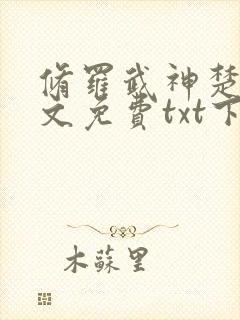 脩羅武神楚
文免費txt下
木蘇里